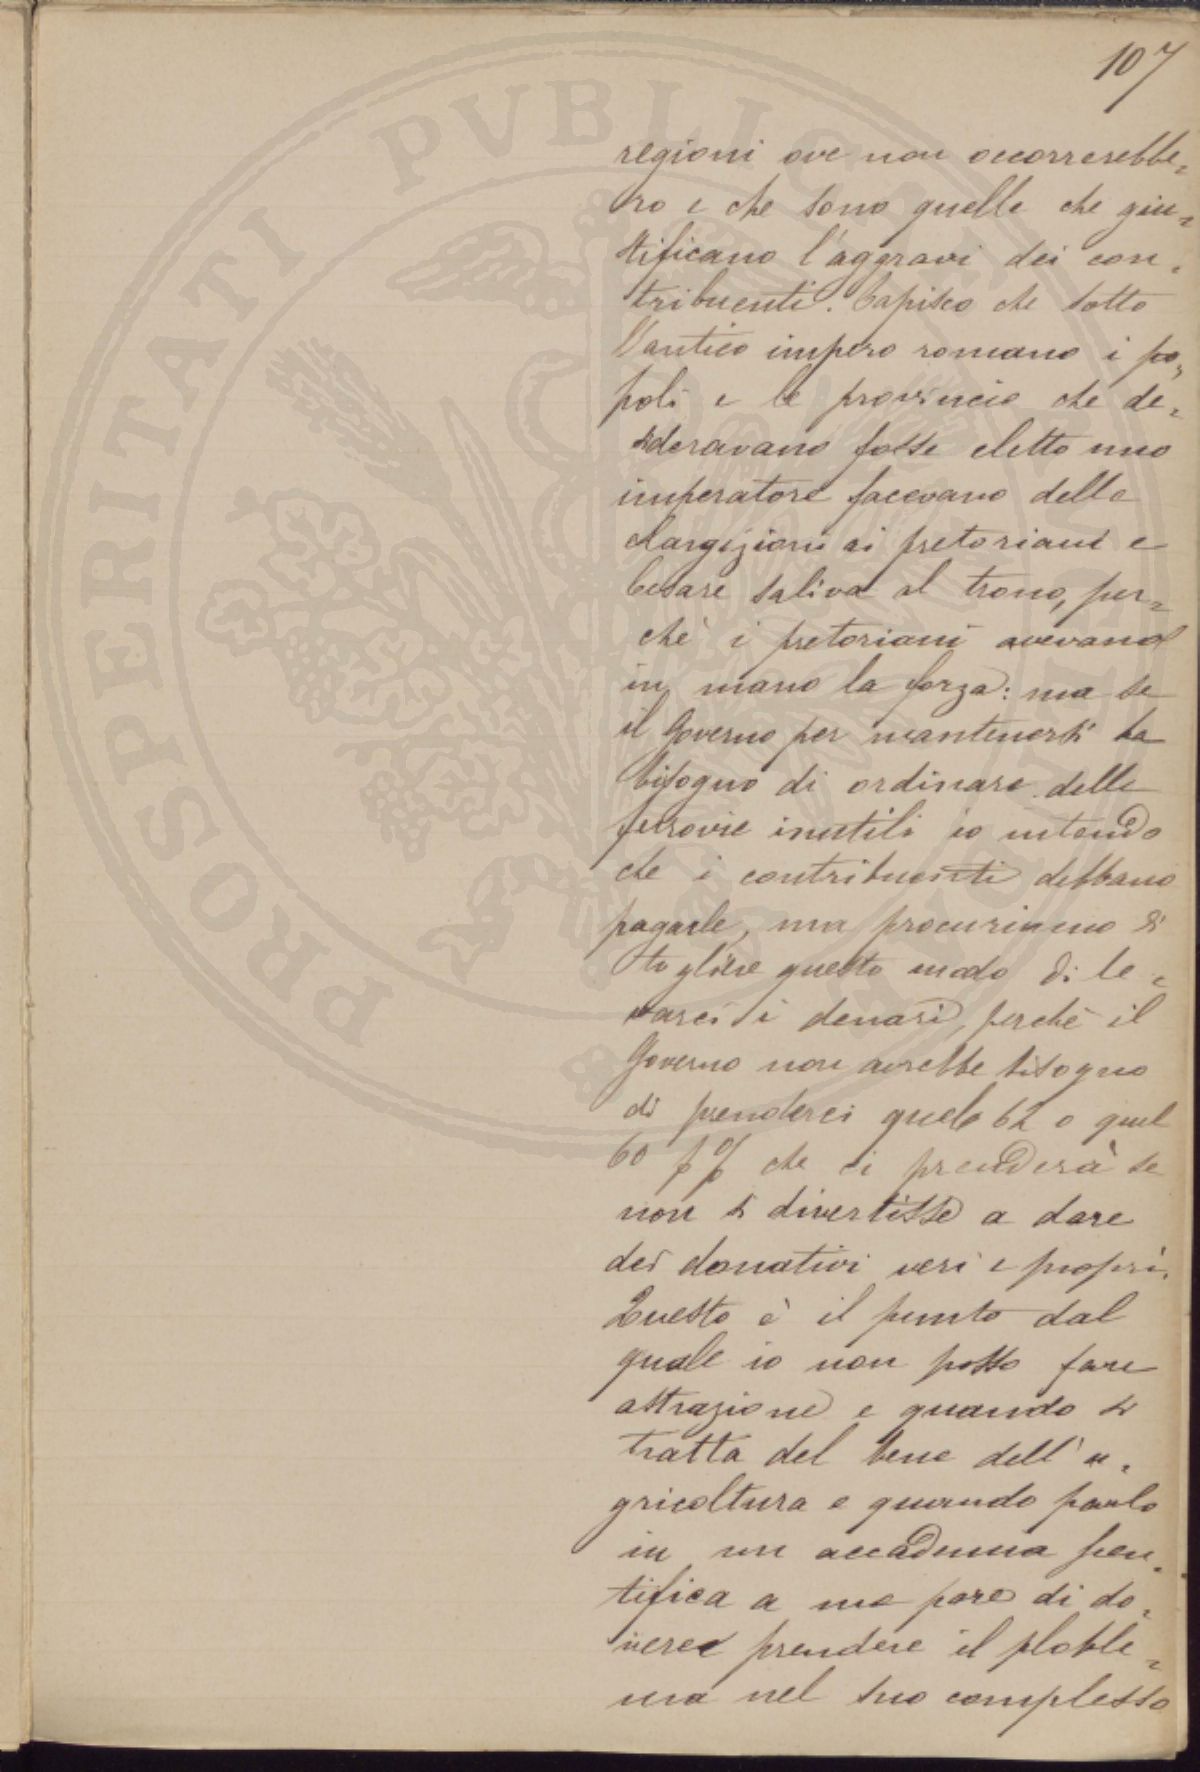 107
regioni ove non occorrerebbe=
ro e che sono quelle che giu=
stificano l'aggravi dei con=
tribuenti. Capisco che sotto
l'antico impero romano i po=
poli e le provincie che de=
sideravano fosse eletto uno
imperatore facevano delle
elargizioni ai pretoriani e
Cesare saliva al trono, per=
chè i pretoriani avevano
in mano la forza: ma se
il Governo per mantenersi ha
bisogno di ordinare delle
ferrovie inutili io intendo
che i contribuenti debbano
pagarle, ma procuriamo di
togliere questo modo di le=
varci i denari, perchè il
Governo non avrebbe bisogno
di prenderci quel 62 o quel
60 p% che ci prenderà se
non si divertisse a dare
dei donativi veri e propri.
Questo è il punto dal
quale io non posso fare
astrazione e quando si
tratta del bene dell'a=
gricoltura e quando parlo
in un accademia scen=
tifica a me pare di do=
vere prendere il ploble=
ma nel suo complesso
PROSPERITATI PVBLICAE